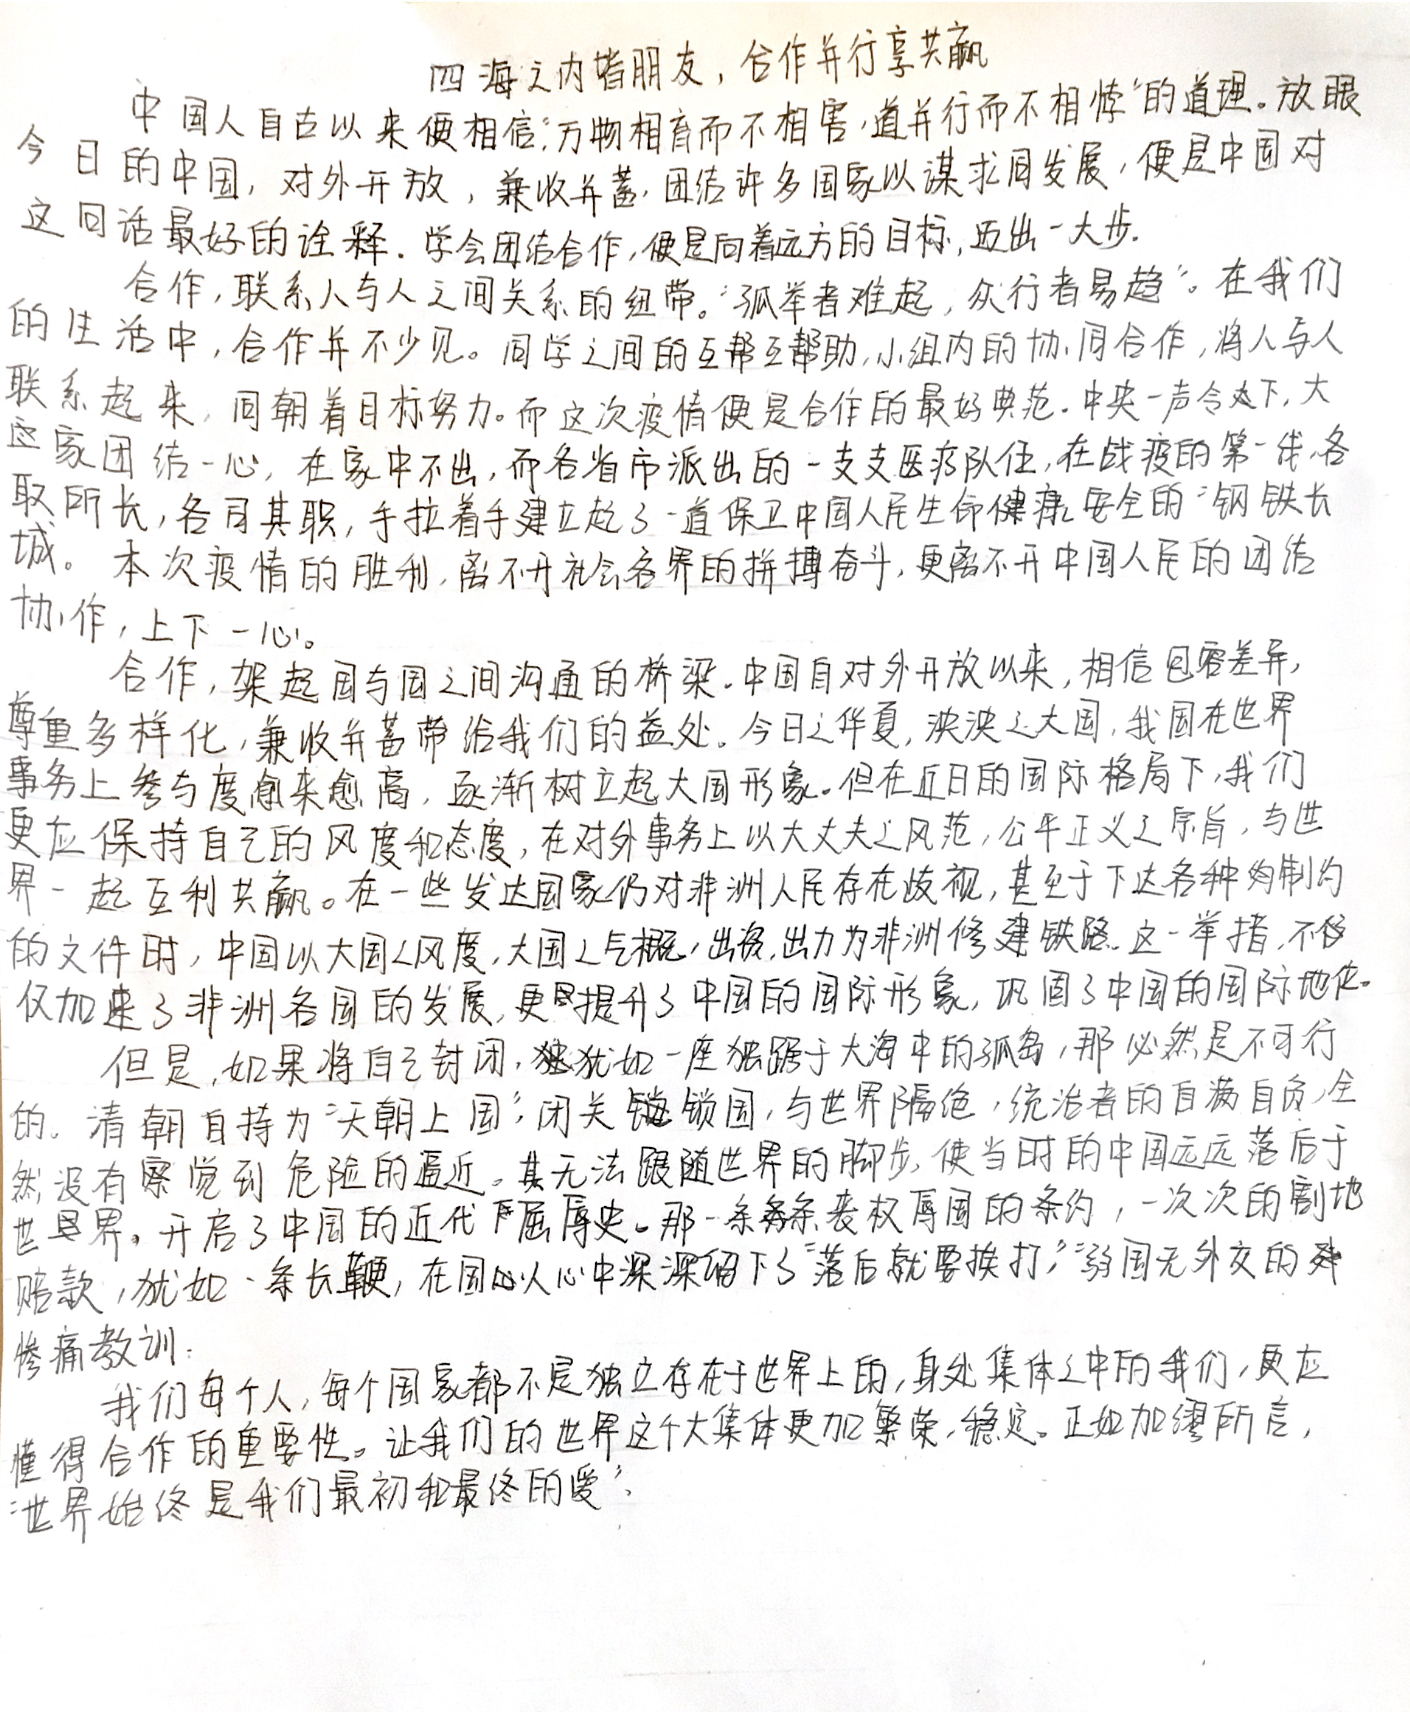 四海之内皆朋友，合作并行享共赢
中国人自古以来便相信“万物相育而不相害，道并行而不相悖”的道理。放眼
今日的中国，对外开放，兼收并蓄，团结许多国家以谋求同发展，便是中国对
这同话最好的诠释．学会团结合作，便是向着远方的目标，迈出一大步．
合作，联系人与人之间关系的纽带。“孤举者难起，众行者易趋”。在我们
的生活中，合作并不少见。同学之间的互帮互帮助，小组内的协同合作，将人与人
联系起来，同朝着目标努力。而这次疫情便是合作的最好典范．中央一声令下，大
家团结一心，在家中不出，而各省市派出的一支支医疗队伍，在战疫的第一线，各
取所长，各司其职，手拉着手建立起了一道保卫中国人民生命健康安全的“钢铁长
城。本次疫情的胜利，离不开社会各界的拼搏奋斗，更离不开中国人民的团结
协作，上下一心。
合作，架起国与国之间沟通的桥梁．中国自对外开放以来，相信包容差异，
尊重多样化，兼收并蓄带给我们的益处。今日之华夏，泱泱之大国，我国在世界
事务上参与度愈来愈高，逐渐树立起大国形象。但在近日的国际格局下，我们
更应保持自己的风度和态度，在对外事务上以大丈夫之风范，公平正义之宗旨，与世
界一起互利共赢。在一些发达国家仍对非洲人民存在歧视，甚至于下达各种的制约
的文件时，中国以大国之风度，大国之气概，出资，出力为非洲修建铁路．这一举措，不仅
仅加速了非洲各国的发展，更是提升了中国的国际形象，巩固了中国的国际地位。
但是，如果将自己封闭，犹如一座独踞于大海中的孤岛，那必然是不可行
的。清朝自持为“天朝上国”，闭关锁国，与世界隔绝，统治者的自满自负，全
然没有察觉到危险的逼近。其无法跟随世界的脚步，使当时的中国远远落后于
世界。开启了中国的近代屈辱史。那一条条丧权辱国的条约，一次次的割地
赔款，犹如一条长鞭，在国人心中深深留下了“落后就要挨打”，“弱国无外交的
惨痛教训．
我们每个人，每个国家都不是独立存在于世界上的，身处集体之中的我们，更应
懂得合作的重要性。让我们的世界这个大集体更加繁荣，稳定。正如加缪所言，
“世界始终是我们最初和最终的爱”．